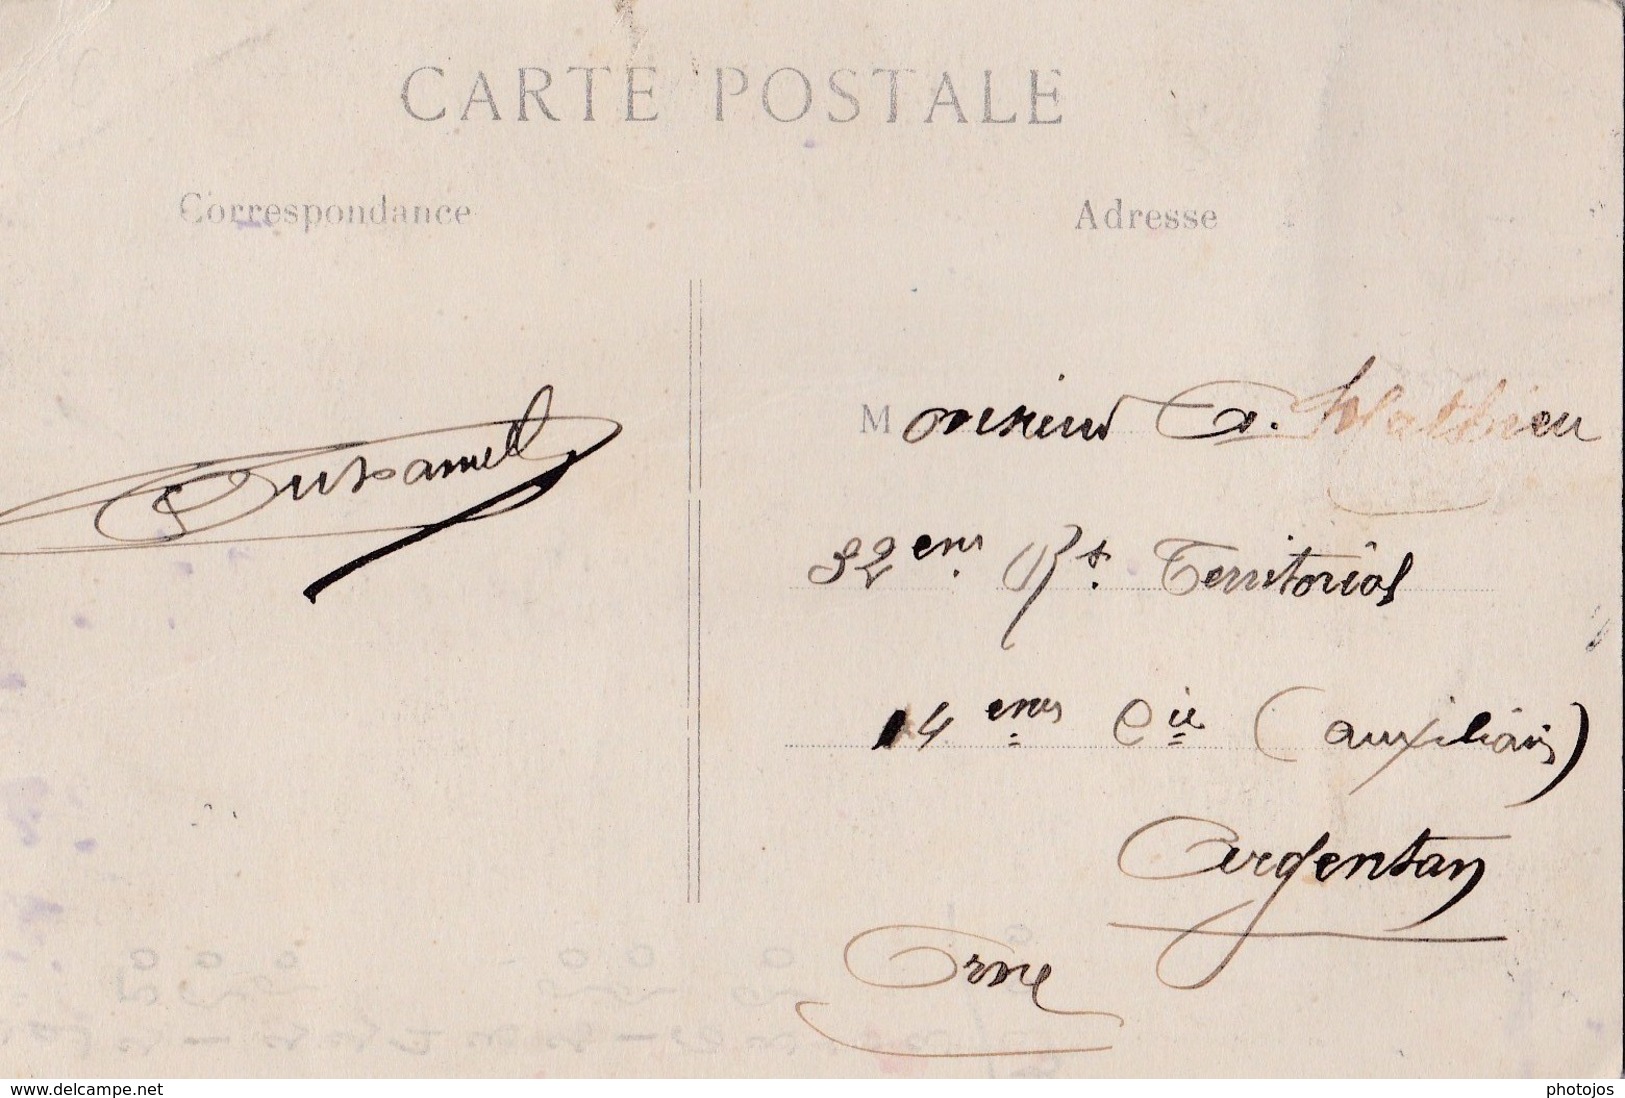 CARTE POSTALE
Correspondance
Adresse
Duhamel
Monsieur A. Mathieu
32ème Rt. Territorial
14ème Cie (auxiliair)
Argentan
Orne
www.delcampe.net
photojos